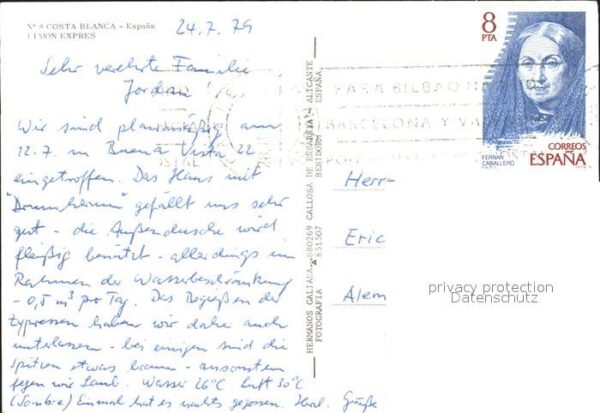 Nº 8 COSTA BLANCA - España
LIMON EXPRES
24.7.79
Sehr verehrte Familie
Jordan!
Wir sind planmäßig am
12.7. in Buena Vista 22
eingetroffen. Das Haus mit
gefällt uns sehr
gut - die Außendusche wird
fleißig benützt - allerdings im
Rahmen der Wasserbeschränkung
- 0,5 m³ pro Tag. Das Begießen der
Zypressen haben wir daher auch
unterlassen - bei einigen sind die
Spitzen etwas braun - ansonsten
fegen wir Laub. Wasser 26°C Luft 30°C
(Sombra) Einmal hat es nachts gegossen. Herzl. Grüße
HERMANOS GALIANA - 880269 CALLOSA DE ENSARRIA - ALICANTE
FOTOGRAFIA 851507 BENIDORM ESPAÑA
8
PTA
CORREOS
ESPAÑA
FERNAN
CABALLERO
PARA BILBAO
BARCELONA Y
Herrn
Eric
Alem
privacy protection
Datenschutz